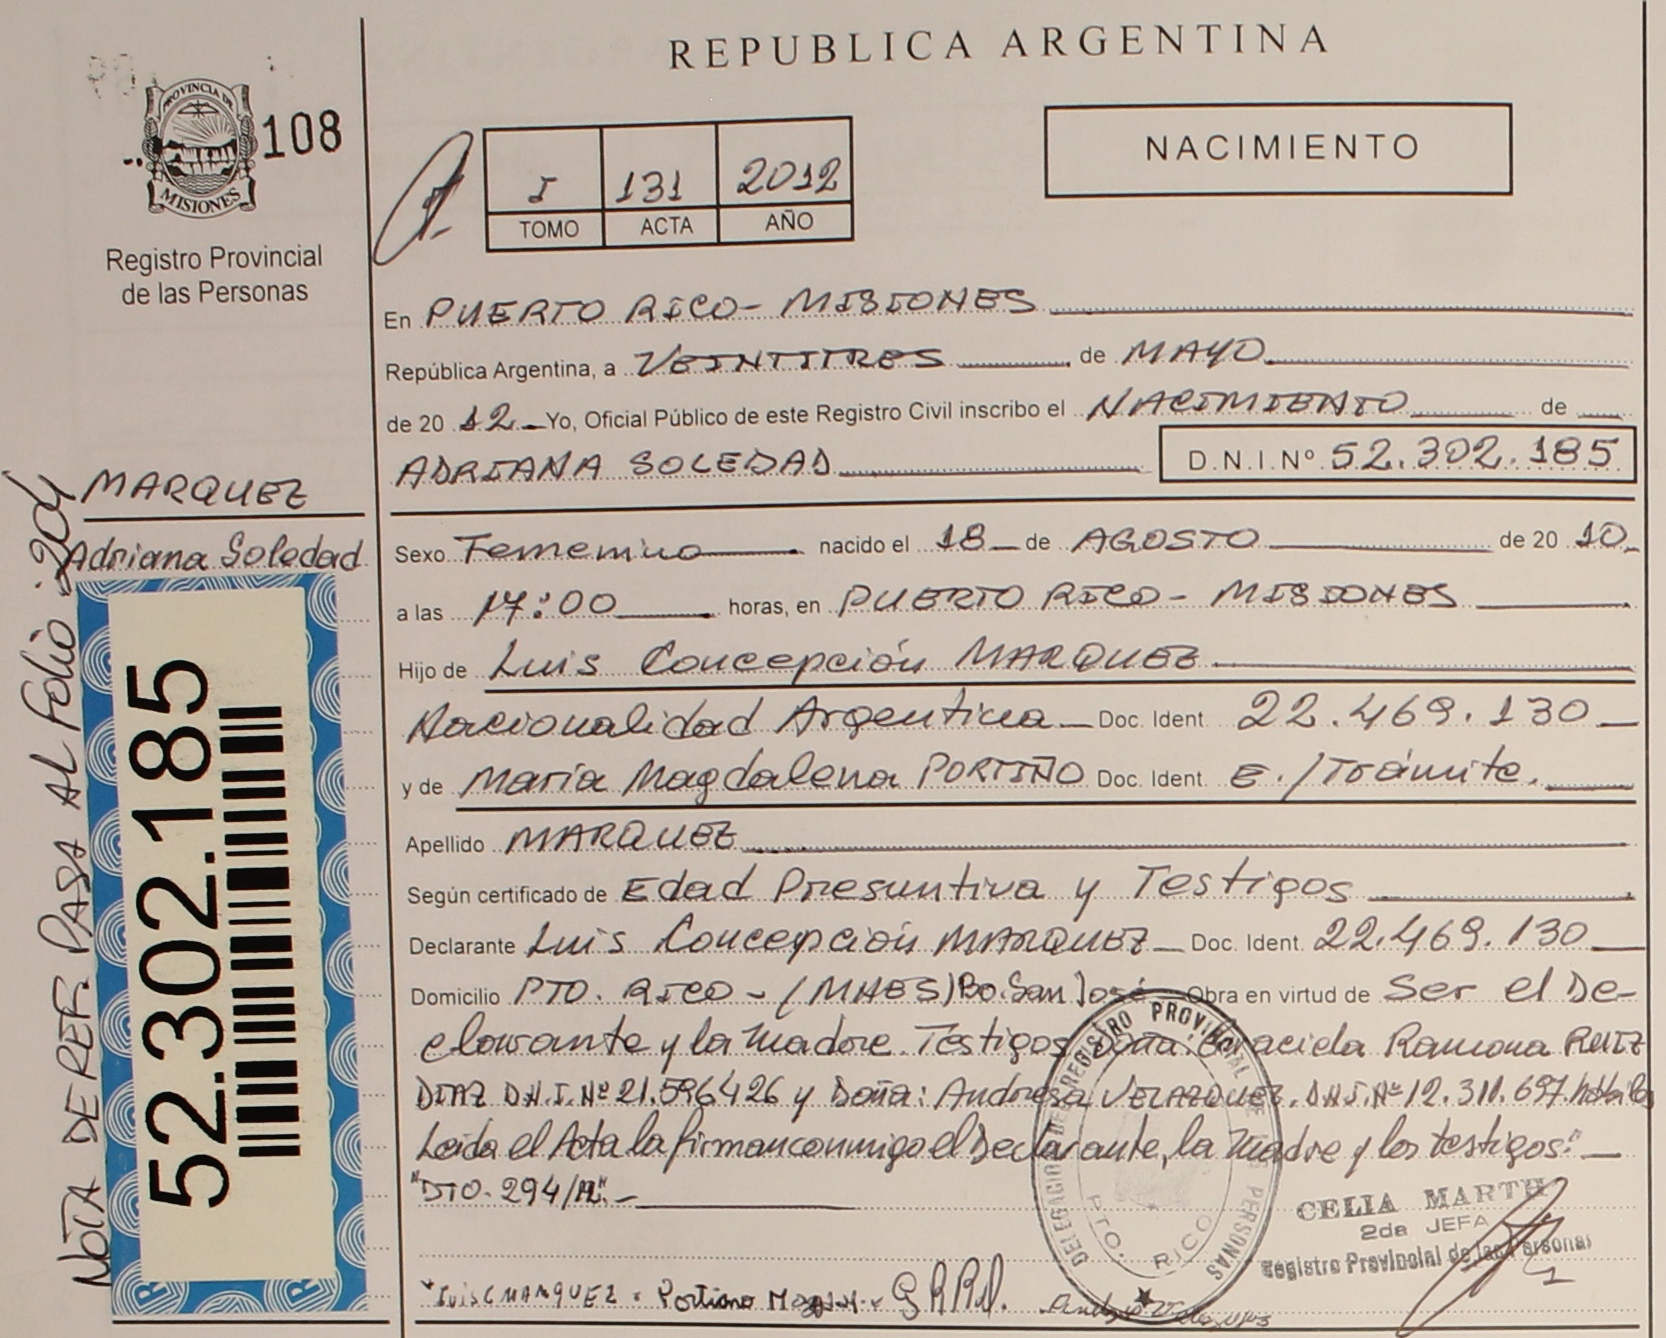 REPUBLICA ARGENTINA
PROVINCIA DE
MISIONES
108
Registro Provincial
de las Personas
I 131 2012
TOMO ACTA AÑO
NACIMIENTO
En PUERTO RICO - MISIONES
República Argentina, a VEINTITRES de MAYO
de 20 12 Yo, Oficial Público de este Registro Civil inscribo el NACIMIENTO de
ADRIANA SOLEDAD D.N.I.Nº 52.302.185
MARQUEZ
Adriana Soledad
Sexo Femenino nacido el 18 de AGOSTO de 20 10
a las 17:00 horas, en PUERTO RICO - MISIONES
Hijo de Luis Concepción MARQUEZ
Nacionalidad Argentina Doc. Ident. 22.469.130
y de Maria Magdalena PORTIÑO Doc. Ident. E./Trámite.
Apellido MARQUEZ
Según certificado de Edad Presuntiva y Testigos
Declarante Luis Concepción MARQUEZ Doc. Ident. 22.469.130
Domicilio PTO. RICO - (MNES) Bo. San José Obra en virtud de Ser el De-
clarante y la Madre. Testigos Doña: Graciela Ramona RUIZ
DIAZ D.N.I. Nº 21.596426 y Doña: Andresa VELAZQUEZ. D.N.I. Nº 12.311.697 hábiles
Leida el Acta la firman conmigo el Declarante, la Madre y los testigos."
"DTO. 294/
52.302.185
NOTA DE REF. PASA AL Folio 204
DELEGACION DE REGISTRO PROVINCIAL DE LAS PERSONAS
PTO. RICO
CELIA MARTH
2da JEFA
Registro Provincial de las Personas
Luis C MARQUEZ